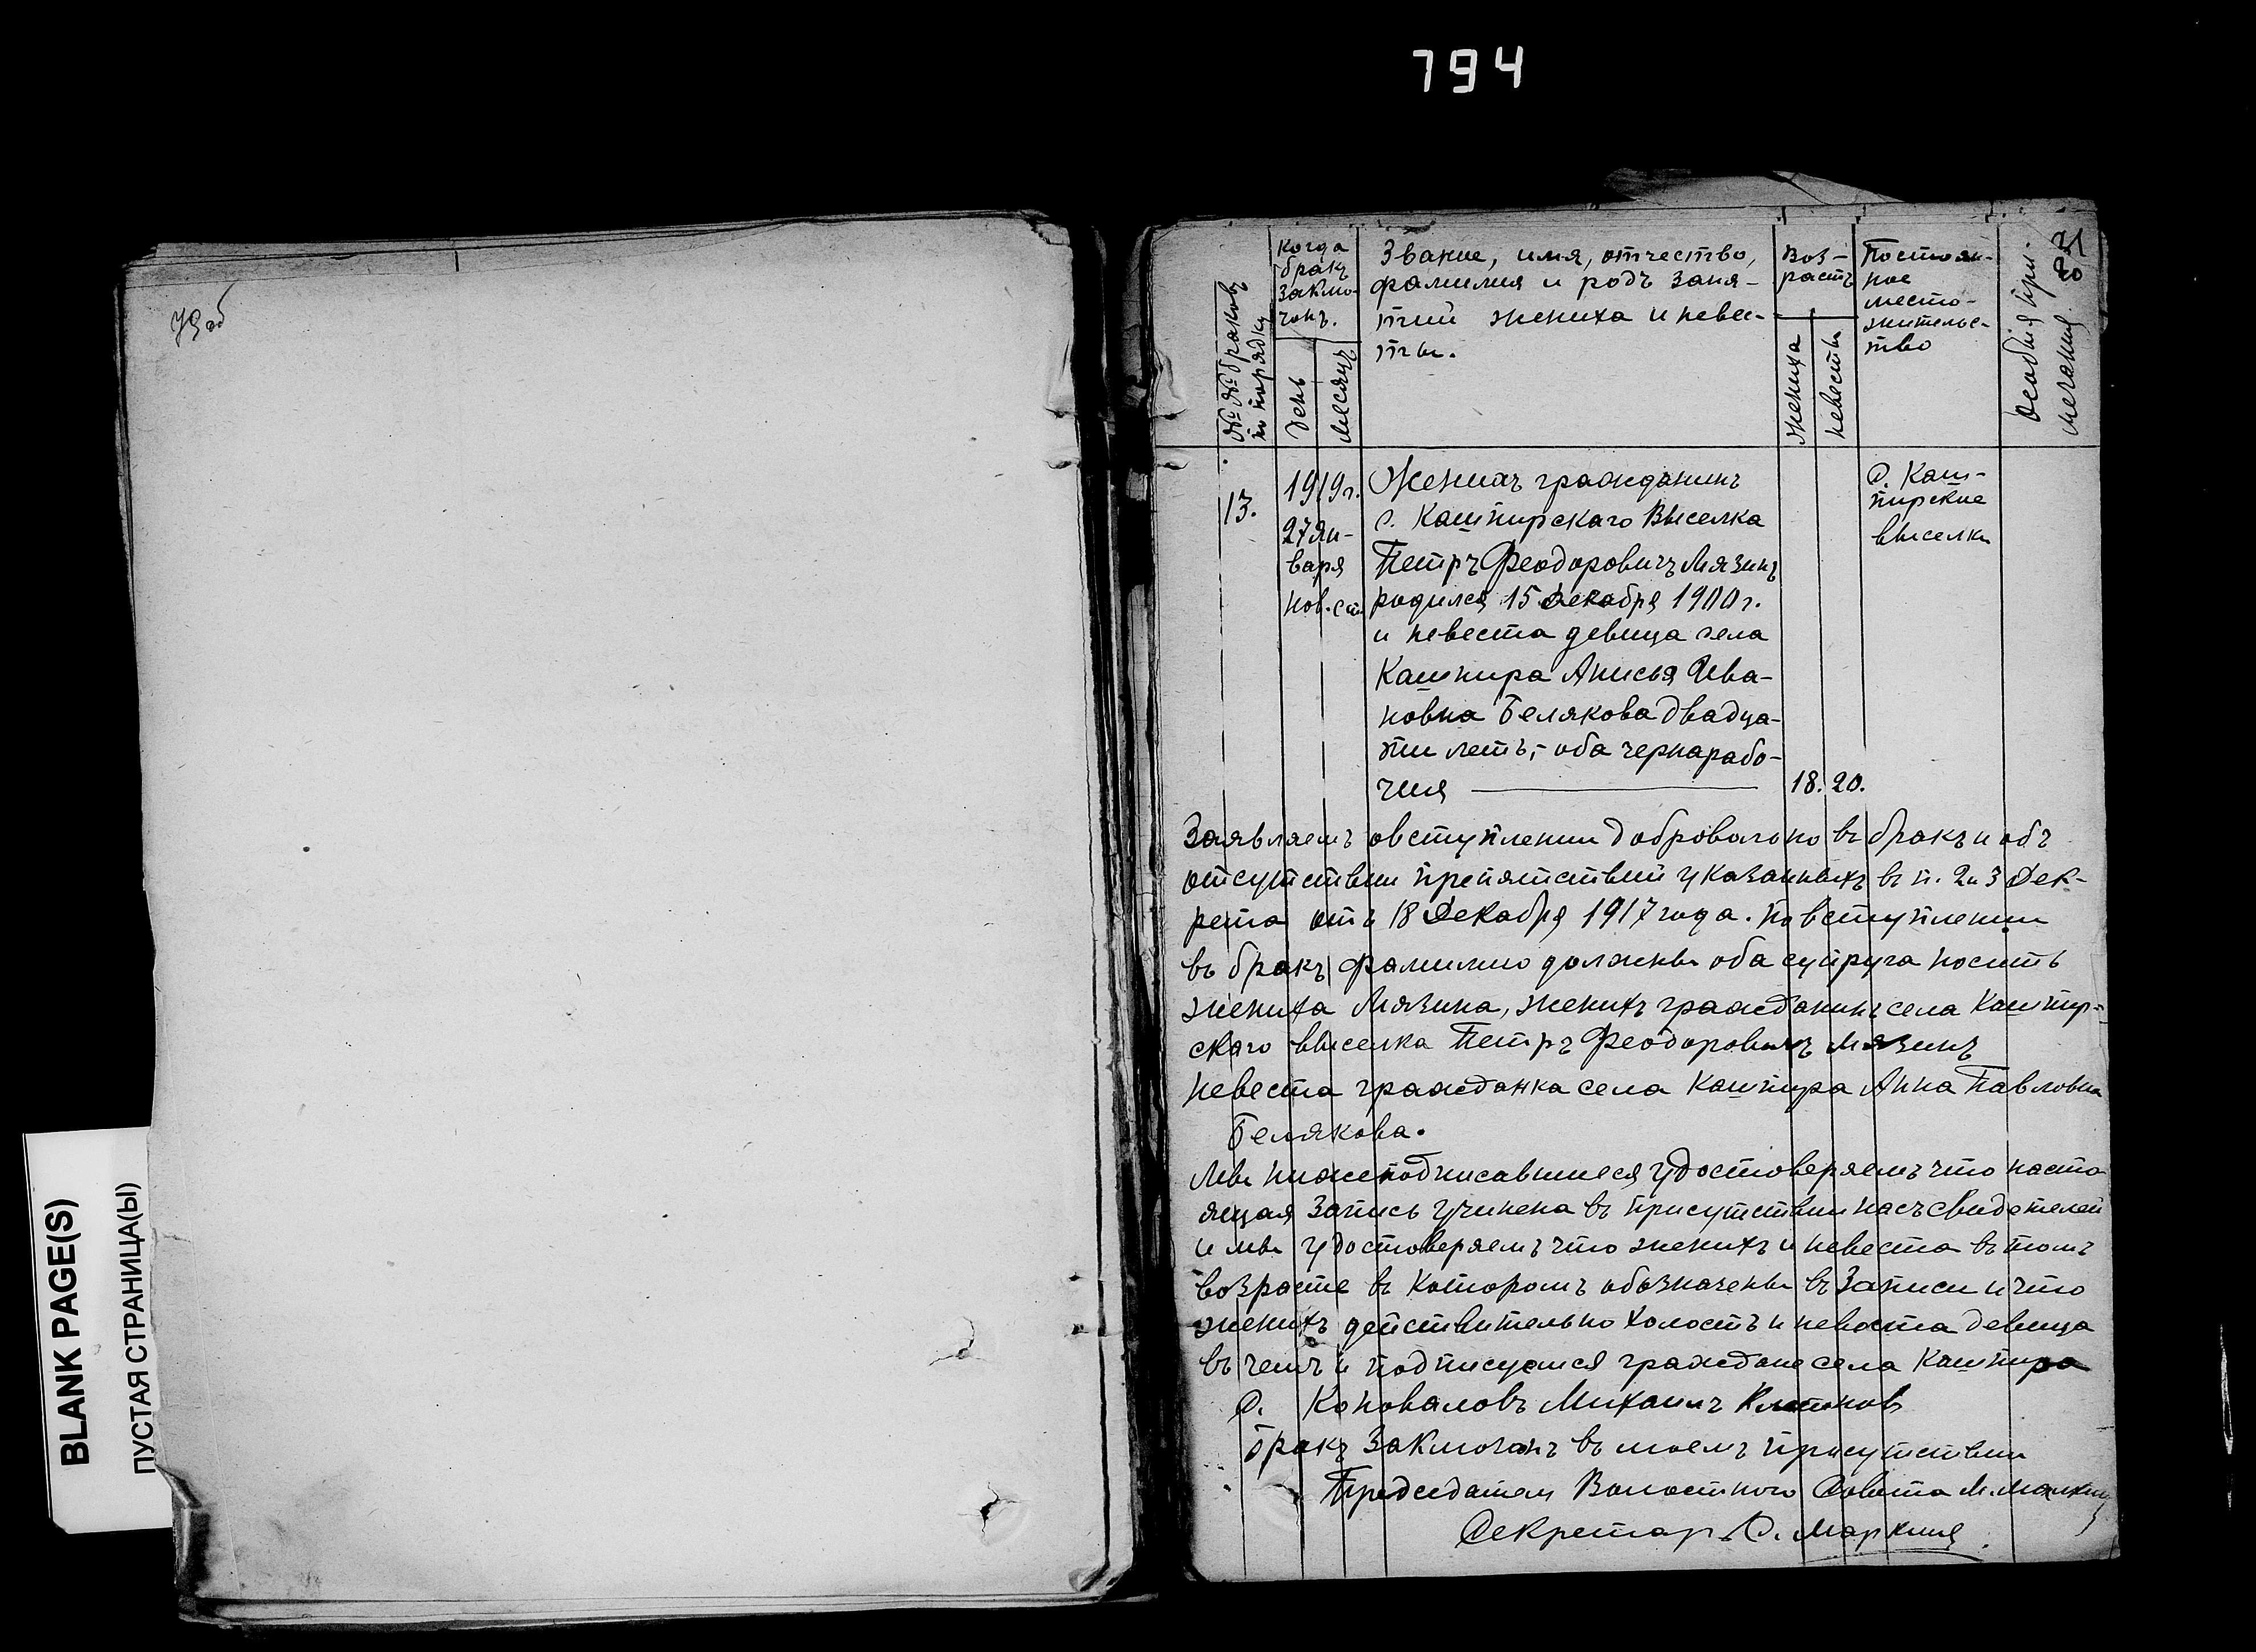 794
79 об
BLANK PAGE(S)
ПУСТАЯ СТРАНИЦА(Ы)
№№ браковъ
по порядку
Когда
бракъ
заклю-
чонъ.
День
Месяцъ
Звание, имя, отчество,
фамилия и родъ заня-
тий жениха и невес-
ты.
Воз-
растъ
Жениха
Невесты
Постоян-
ное
место-
жительс-
тво
Особыя при-
мечания
80
13.
1919 г.
27 Ян-
варя
нов. ст.
Женихъ гражданинъ
с. Кашпирскаго Выселка
Петръ Феодоровичъ Мязинъ
родился 15 Декабря 1900 г.
и невеста девица села
Кашпира Анисья Ива-
новна Белякова двадца-
ти летъ, - оба чернарабо-
чия
18. 20.
С. Каш-
пирские
выселки
Заявляемъ овступлении добровольно въ бракъ и объ
отсутствии препятствий указанныхъ въ п. 2 и 3 Дек-
рета отъ 18 Декабря 1917 года. По вступлении
въ бракъ фамилию должны оба супруга носить
жениха Мязина, женихъ гражданинъ села Кашпир-
скаго выселка Петръ Феодоровичъ Мязинъ
Невеста гражданка села Кашпира Анна Павловна
Белякова.
Мы нижеподписавшиеся удостоверяемъ что насто
ящая запись учинена въ присутствии насъ свидетелей
и мы удостоверяемъ что женихъ и невеста въ томъ
возрасте въ которомъ обозначены въ записи и что
женихъ действительно холостъ и невеста девица
въ чемъ и подписуемся граждане села Кашпира
С. Коновалов Михаилъ
бракъ заключонъ въ моемъ присутствии
Председатель Волостного Совета М.
Секретарь С. Маркинъ